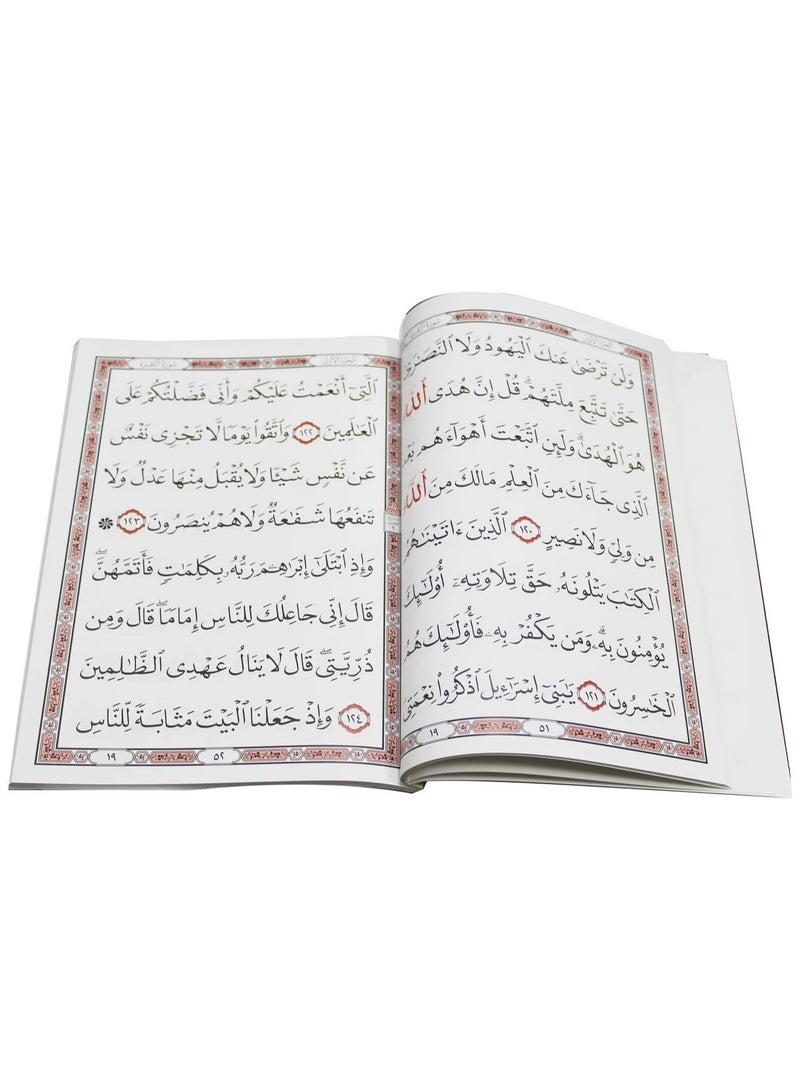 سورة البقرة
وَلَن تَرْضَىٰ عَنكَ ٱلْيَهُودُ وَلَا ٱلنَّصَٰرَىٰ
حَتَّىٰ تَتَّبِعَ مِلَّتَهُمْ ۗ قُلْ إِنَّ هُدَى ٱللَّهِ
هُوَ ٱلْهُدَىٰ ۗ وَلَئِنِ ٱتَّبَعْتَ أَهْوَآءَهُم
ٱلَّذِى جَآءَكَ مِنَ ٱلْعِلْمِ مَا لَكَ مِنَ ٱللَّهِ
مِن وَلِىٍّ وَلَا نَصِيرٍ ١٢٠ ٱلَّذِينَ ءَاتَيْنَٰهُمُ
ٱلْكِتَٰبَ يَتْلُونَهُۥ حَقَّ تِلَاوَتِهِۦٓ أُو۟لَٰٓئِكَ
يُؤْمِنُونَ بِهِۦ ۗ وَمَن يَكْفُرْ بِهِۦ فَأُو۟لَٰٓئِكَ هُمُ
ٱلْخَٰسِرُونَ ١٢١ يَٰبَنِىٓ إِسْرَٰٓءِيلَ ٱذْكُرُوا۟ نِعْمَتِىَ
٥١ ١٩
الجزء الأول سورة البقرة
ٱلَّتِىٓ أَنْعَمْتُ عَلَيْكُمْ وَأَنِّى فَضَّلْتُكُمْ عَلَى
ٱلْعَٰلَمِينَ ١٢٢ وَٱتَّقُوا۟ يَوْمًا لَّا تَجْزِى نَفْسٌ
عَن نَّفْسٍ شَيْـًٔا وَلَا يُقْبَلُ مِنْهَا عَدْلٌ وَلَا
تَنفَعُهَا شَفَٰعَةٌ وَلَا هُمْ يُنصَرُونَ ١٢٣ ۞
وَإِذِ ٱبْتَلَىٰٓ إِبْرَٰهِـۧمَ رَبُّهُۥ بِكَلِمَٰتٍ فَأَتَمَّهُنَّ ۖ
قَالَ إِنِّى جَاعِلُكَ لِلنَّاسِ إِمَامًا ۖ قَالَ وَمِن
ذُرِّيَّتِى ۖ قَالَ لَا يَنَالُ عَهْدِى ٱلظَّٰلِمِينَ
١٢٤ وَإِذْ جَعَلْنَا ٱلْبَيْتَ مَثَابَةً لِّلنَّاسِ
٥٢ ١٩